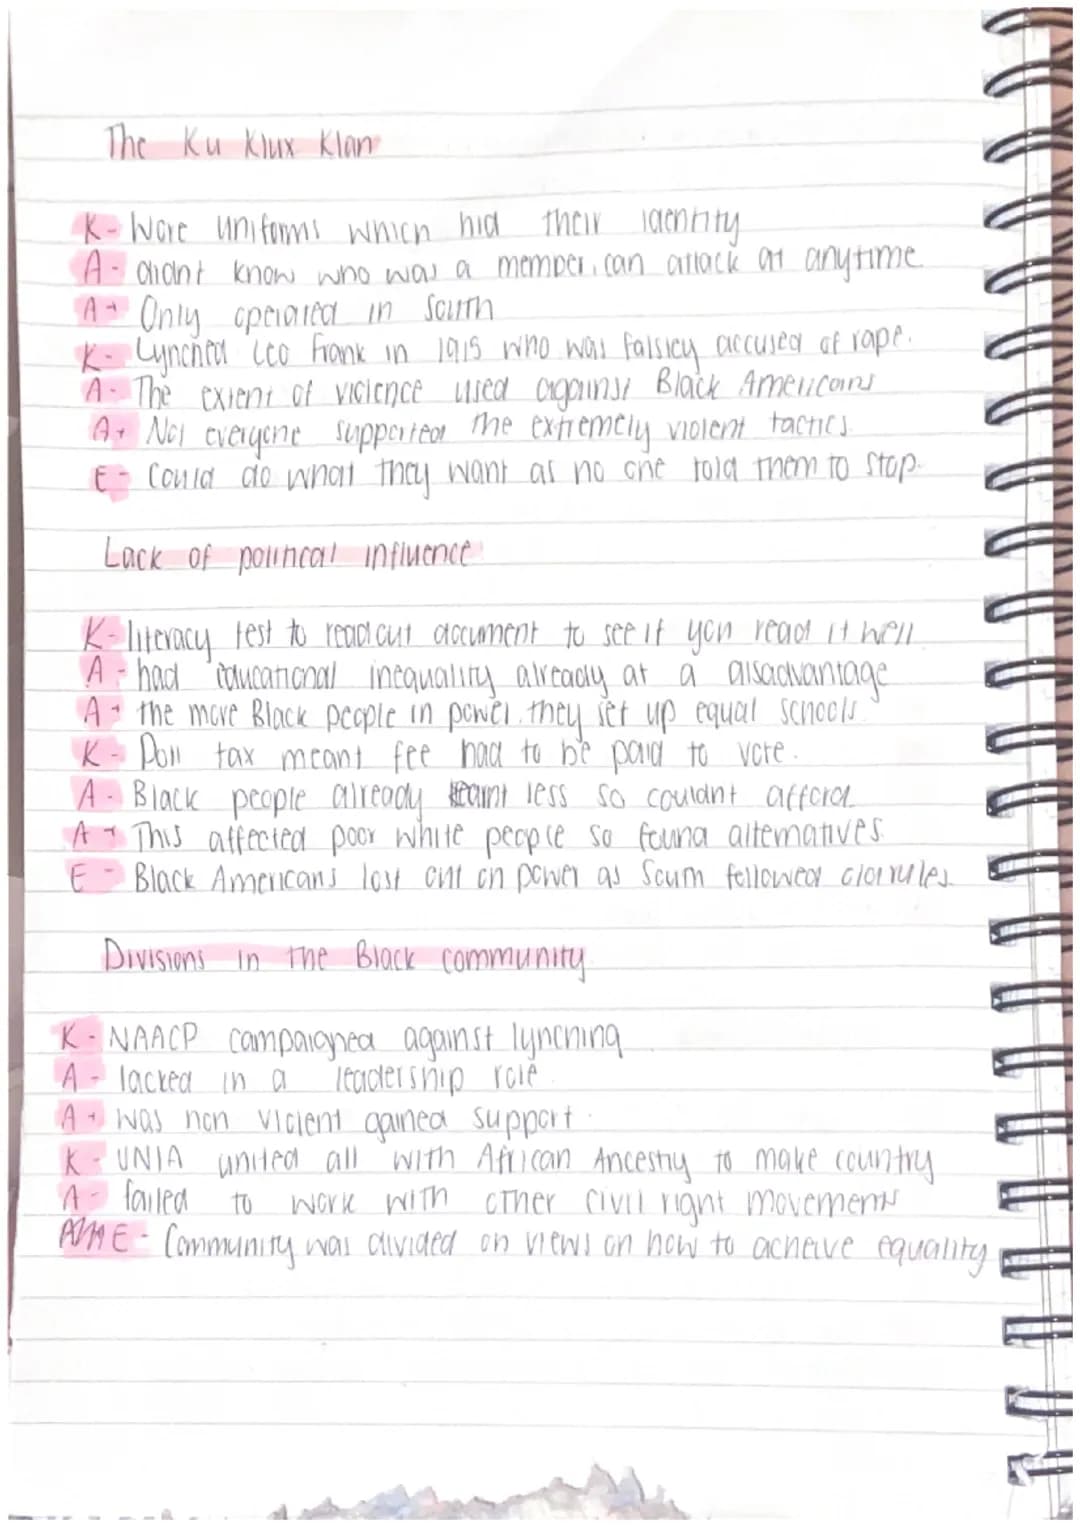 The Ku Klux Klan
K- Wore uniforms which hid their identity
A- didnt know who was a member, can attack at anytime
A+ Only operated in South
K- Lynched Leo Frank in 1915 who was falsley accused of rape.
A- The extent of violence used against Black Americans
A+ Not everyone supported the extremely violent tactics.
E- Could do what they want as no one told them to stop.
Lack of political influence
K- literacy test to read out document to see if you read it well
A- had educational inequality already at a disadvantage
A+ the more Black people in power, they set up equal schools
K- Poll tax meant fee had to be paid to vote.
A- Black people already earnt less so couldnt afford
A+ This affected poor white people so found alternatives
E- Black Americans lost out on power as South followed rules
Divisions in the Black community
K- NAACP campaigned against lynching
A- lacked in a leadership role
A+ was non violent gained support.
K- UNIA united all with African Ancestry to make country
A- failed to work with other civil right movements
E- Community was divided on views on how to acheive equality